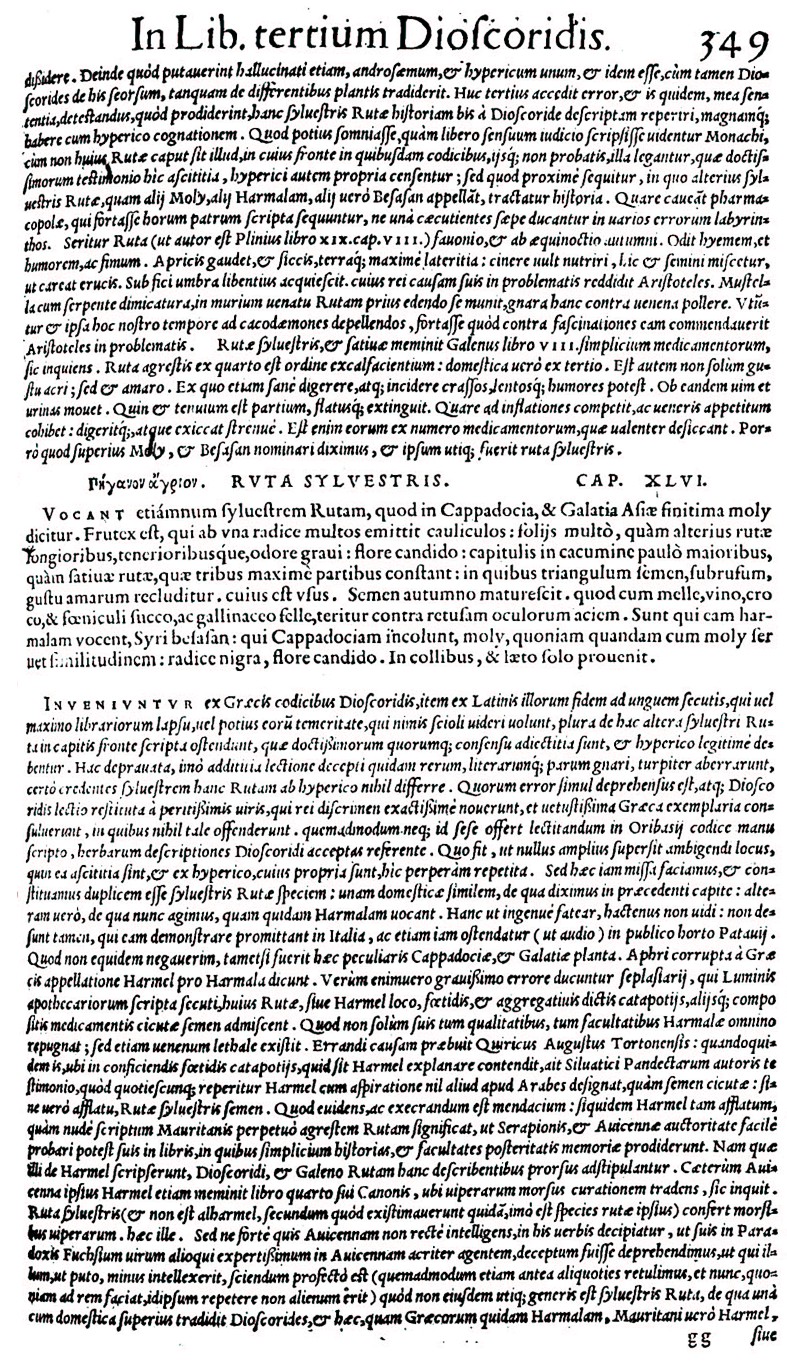 In Lib. tertium Dioſcoridis. 349
dißidere. Deinde quòd putauerint hallucinati etiam, androſæmum, & hypericum unum, & idem eſſe, cùm tamen Dio-
ſcorides de his ſeorſum, tanquam de differentibus plantis tradiderit. Huc tertius accedit error, & is quidem, mea ſen-
tentia, deteſtandus, quòd prodiderint, hanc ſylueſtris Rutæ hiſtoriam bis à Dioſcoride deſcriptam reperiri, magnamq́;
habere cum hyperico cognationem. Quod potius ſomniaſſe, quàm libero ſenſuum iudicio ſcripſiſſe uidentur Monachi,
cùm non huius Rutæ caput ſit illud, in cuius fronte in quibuſdam codicibus, ijsq́; non probatis, illa legantur, quæ doctiſ-
ſimorum teſtimonio hic aſcititia, hyperici autem propria cenſentur; ſed quod proximè ſequitur, in quo alterius ſyl-
ueſtris Rutæ, quam alij Moly, alij Harmalam, alij uerò Beſaſan appellāt, tractatur hiſtoria. Quare caueāt pharma-
copolæ, qui fortaſſe horum patrum ſcripta ſequuntur, ne unà cæcutientes ſæpe ducantur in uarios errorum labyrin-
thos. Seritur Ruta (ut autor eſt Plinius libro XIX. cap. VIII.) fauonio, & ab æquinoctio autumni. Odit hyemem, et
humorem, ac fimum. Apricis gaudet, & ſiccis, terraq́; maximè lateritia: cinere uult nutriri, hic & ſemini miſcetur,
ut careat erucis. Sub fici umbra libentius acquieſcit. cuius rei cauſam ſuis in problematis reddidit Ariſtoteles. Muſtel-
la cum ſerpente dimicatura, in murium uenatu Rutam prius edendo ſe munit, gnara hanc contra uenena pollere. Vtū-
tur & ipſa hoc noſtro tempore ad cacodæmones depellendos, fortaſſe quòd contra faſcinationes eam commendauerit
Ariſtoteles in problematis. Rutæ ſylueſtris, & ſatiuæ meminit Galenus libro VIII. ſimplicium medicamentorum,
ſic inquiens. Ruta agreſtis ex quarto eſt ordine excalfacientium: domeſtica uerò ex tertio. Eſt autem non ſolùm gu-
ſtu acri; ſed & amaro. Ex quo etiam ſanè digerere, atq; incidere craſſos, lentosq́; humores poteſt. Ob eandem uim et
urinas mouet. Quin & tenuium eſt partium, flatusq́; extinguit. Quare ad inflationes competit, ac ueneris appetitum
cohibet: digeritq́;, atque exiccat ſtrenuè. Eſt enim eorum ex numero medicamentorum, quæ ualenter deſiccant. Por-
rò quod ſuperius Moly, & Beſaſan nominari diximus, & ipſum utiq; fuerit ruta ſylueſtris.
Πήγανον ἄγριον. RVTA SYLVESTRIS. CAP. XLVI.
VOCANT etiámnum ſylueſtrem Rutam, quod in Cappadocia, & Galatia Aſiæ finitima moly
dicitur. Frutex eſt, qui ab vna radice multos emittit cauliculos: folijs multò, quàm alterius rutæ
longioribus, tenerioribusque, odore graui: flore candido: capitulis in cacumine paulò maioribus,
quàm ſatiuæ rutæ, quæ tribus maximè partibus conſtant: in quibus triangulum ſemen, ſubrufum,
guſtu amarum recluditur. cuius eſt vſus. Semen autumno matureſcit. quod cum melle, vino, cro
co, & fœniculi ſucco, ac gallinaceo felle, teritur contra retuſam oculorum aciem. Sunt qui eam har-
malam vocent, Syri beſaſan: qui Cappadociam incolunt, moly, quoniam quandam cum moly ſer
uet ſimilitudinem: radice nigra, flore candido. In collibus, & læto ſolo prouenit.
INVENIVNTVR ex Græcis codicibus Dioſcoridis, item ex Latinis illorum fidem ad unguem ſecutis, qui uel
maximo librariorum lapſu, uel potius eorū temeritate, qui nimis ſcioli uideri uolunt, plura de hac altera ſylueſtri Ru-
ta in capitis fronte ſcripta oſtendunt, quæ doctißimorum quorumq; conſenſu adiectitia ſunt, & hyperico legitimè de-
bentur. Hac deprauata, imò addititia lectione decepti quidam rerum, literarumq́; parum gnari, turpiter aberrarunt,
certò credentes ſylueſtrem hanc Rutam ab hyperico nihil differre. Quorum error ſimul deprehenſus eſt, atq; Dioſco
ridis lectio reſtituta à peritißimis uiris, qui rei diſcrimen exactißimè nouerunt, et uetuſtißima Græca exemplaria con-
ſuluerunt, in quibus nihil tale offenderunt. quemadmodum neq; id ſeſe offert lectitandum in Oribaſij codice manu
ſcripto, herbarum deſcriptiones Dioſcoridi acceptas referente. Quo fit, ut nullus amplius ſuperſit ambigendi locus,
quin ea aſcititia ſint, & ex hyperico, cuius propria ſunt, hic perperàm repetita. Sed hæc iam miſſa faciamus, & con-
ſtituamus duplicem eſſe ſylueſtris Rutæ ſpeciem: unam domeſticæ ſimilem, de qua diximus in præcedenti capite: alte-
ram uerò, de qua nunc agimus, quam quidam Harmalam uocant. Hanc ut ingenuè fatear, hactenus non uidi: non de-
ſunt tamen, qui eam demonſtrare promittant in Italia, ac etiam iam oſtendatur (ut audio) in publico horto Patauij.
Quod non equidem negauerim, tametſi fuerit hæc peculiaris Cappadociæ, & Galatiæ planta. Aphri corrupta à Græ
cis appellatione Harmel pro Harmala dicunt. Verùm enimuero grauißimo errore ducuntur ſeplaſiarij, qui Luminis
apothecariorum ſcripta ſecuti, huius Rutæ, ſiue Harmel loco, fœtidis, & aggregatiuis dictis catapotijs, alijsq́; compo
ſitis medicamentis cicutæ ſemen admiſcent. Quod non ſolùm ſuis tum qualitatibus, tum facultatibus Harmalæ omnino
repugnat; ſed etiam uenenum lethale exiſtit. Errandi cauſam præbuit Quiricus Auguſtus Tortonenſis: quandoqui-
dem is, ubi in conficiendis fœtidis catapotijs, quid ſit Harmel explanare contendit, ait Siluatici Pandectarum autoris te
ſtimonio, quòd quotieſcunq; reperitur Harmel cum aſpiratione nil aliud apud Arabes deſignat, quàm ſemen cicutæ: ſi-
ne uerò afflatu, Rutæ ſylueſtris ſemen. Quod euidens, ac execrandum eſt mendacium: ſiquidem Harmel tam afflatum,
quàm nudè ſcriptum Mauritanis perpetuò agreſtem Rutam ſignificat, ut Serapionis, & Auicennæ auctoritate facilè
probari poteſt ſuis in libris, in quibus ſimplicium hiſtorias, & facultates poſteritatis memoriæ prodiderunt. Nam quæ
illi de Harmel ſcripſerunt, Dioſcoridi, & Galeno Rutam hanc deſcribentibus prorſus adſtipulantur. Cæterùm Aui-
cenna ipſius Harmel etiam meminit libro quarto ſui Canonis, ubi uiperarum morſus curationem tradens, ſic inquit.
Ruta ſylueſtris (& non eſt alharmel, ſecundum quòd exiſtimauerunt quidā, imò eſt ſpecies rutæ ipſius) confert morſi-
bus uiperarum. hæc ille. Sed ne fortè quis Auicennam non rectè intelligens, in his uerbis decipiatur, ut ſuis in Para-
doxis Fuchſium uirum alioqui expertißimum in Auicennam acriter agentem, deceptum fuiſſe deprehendimus, ut qui il-
lum, ut puto, minus intellexerit, ſciendum profectò eſt (quemadmodum etiam antea aliquoties retulimus, et nunc, quo-
niam ad rem faciat, idipſum repetere non alienum erit) quòd non eiuſdem utiq; generis eſt ſylueſtris Ruta, de qua unà
cum domeſtica ſuperius tradidit Dioſcorides, & hæc, quam Græcorum quidam Harmalam, Mauritani uerò Harmel,
gg ſiue